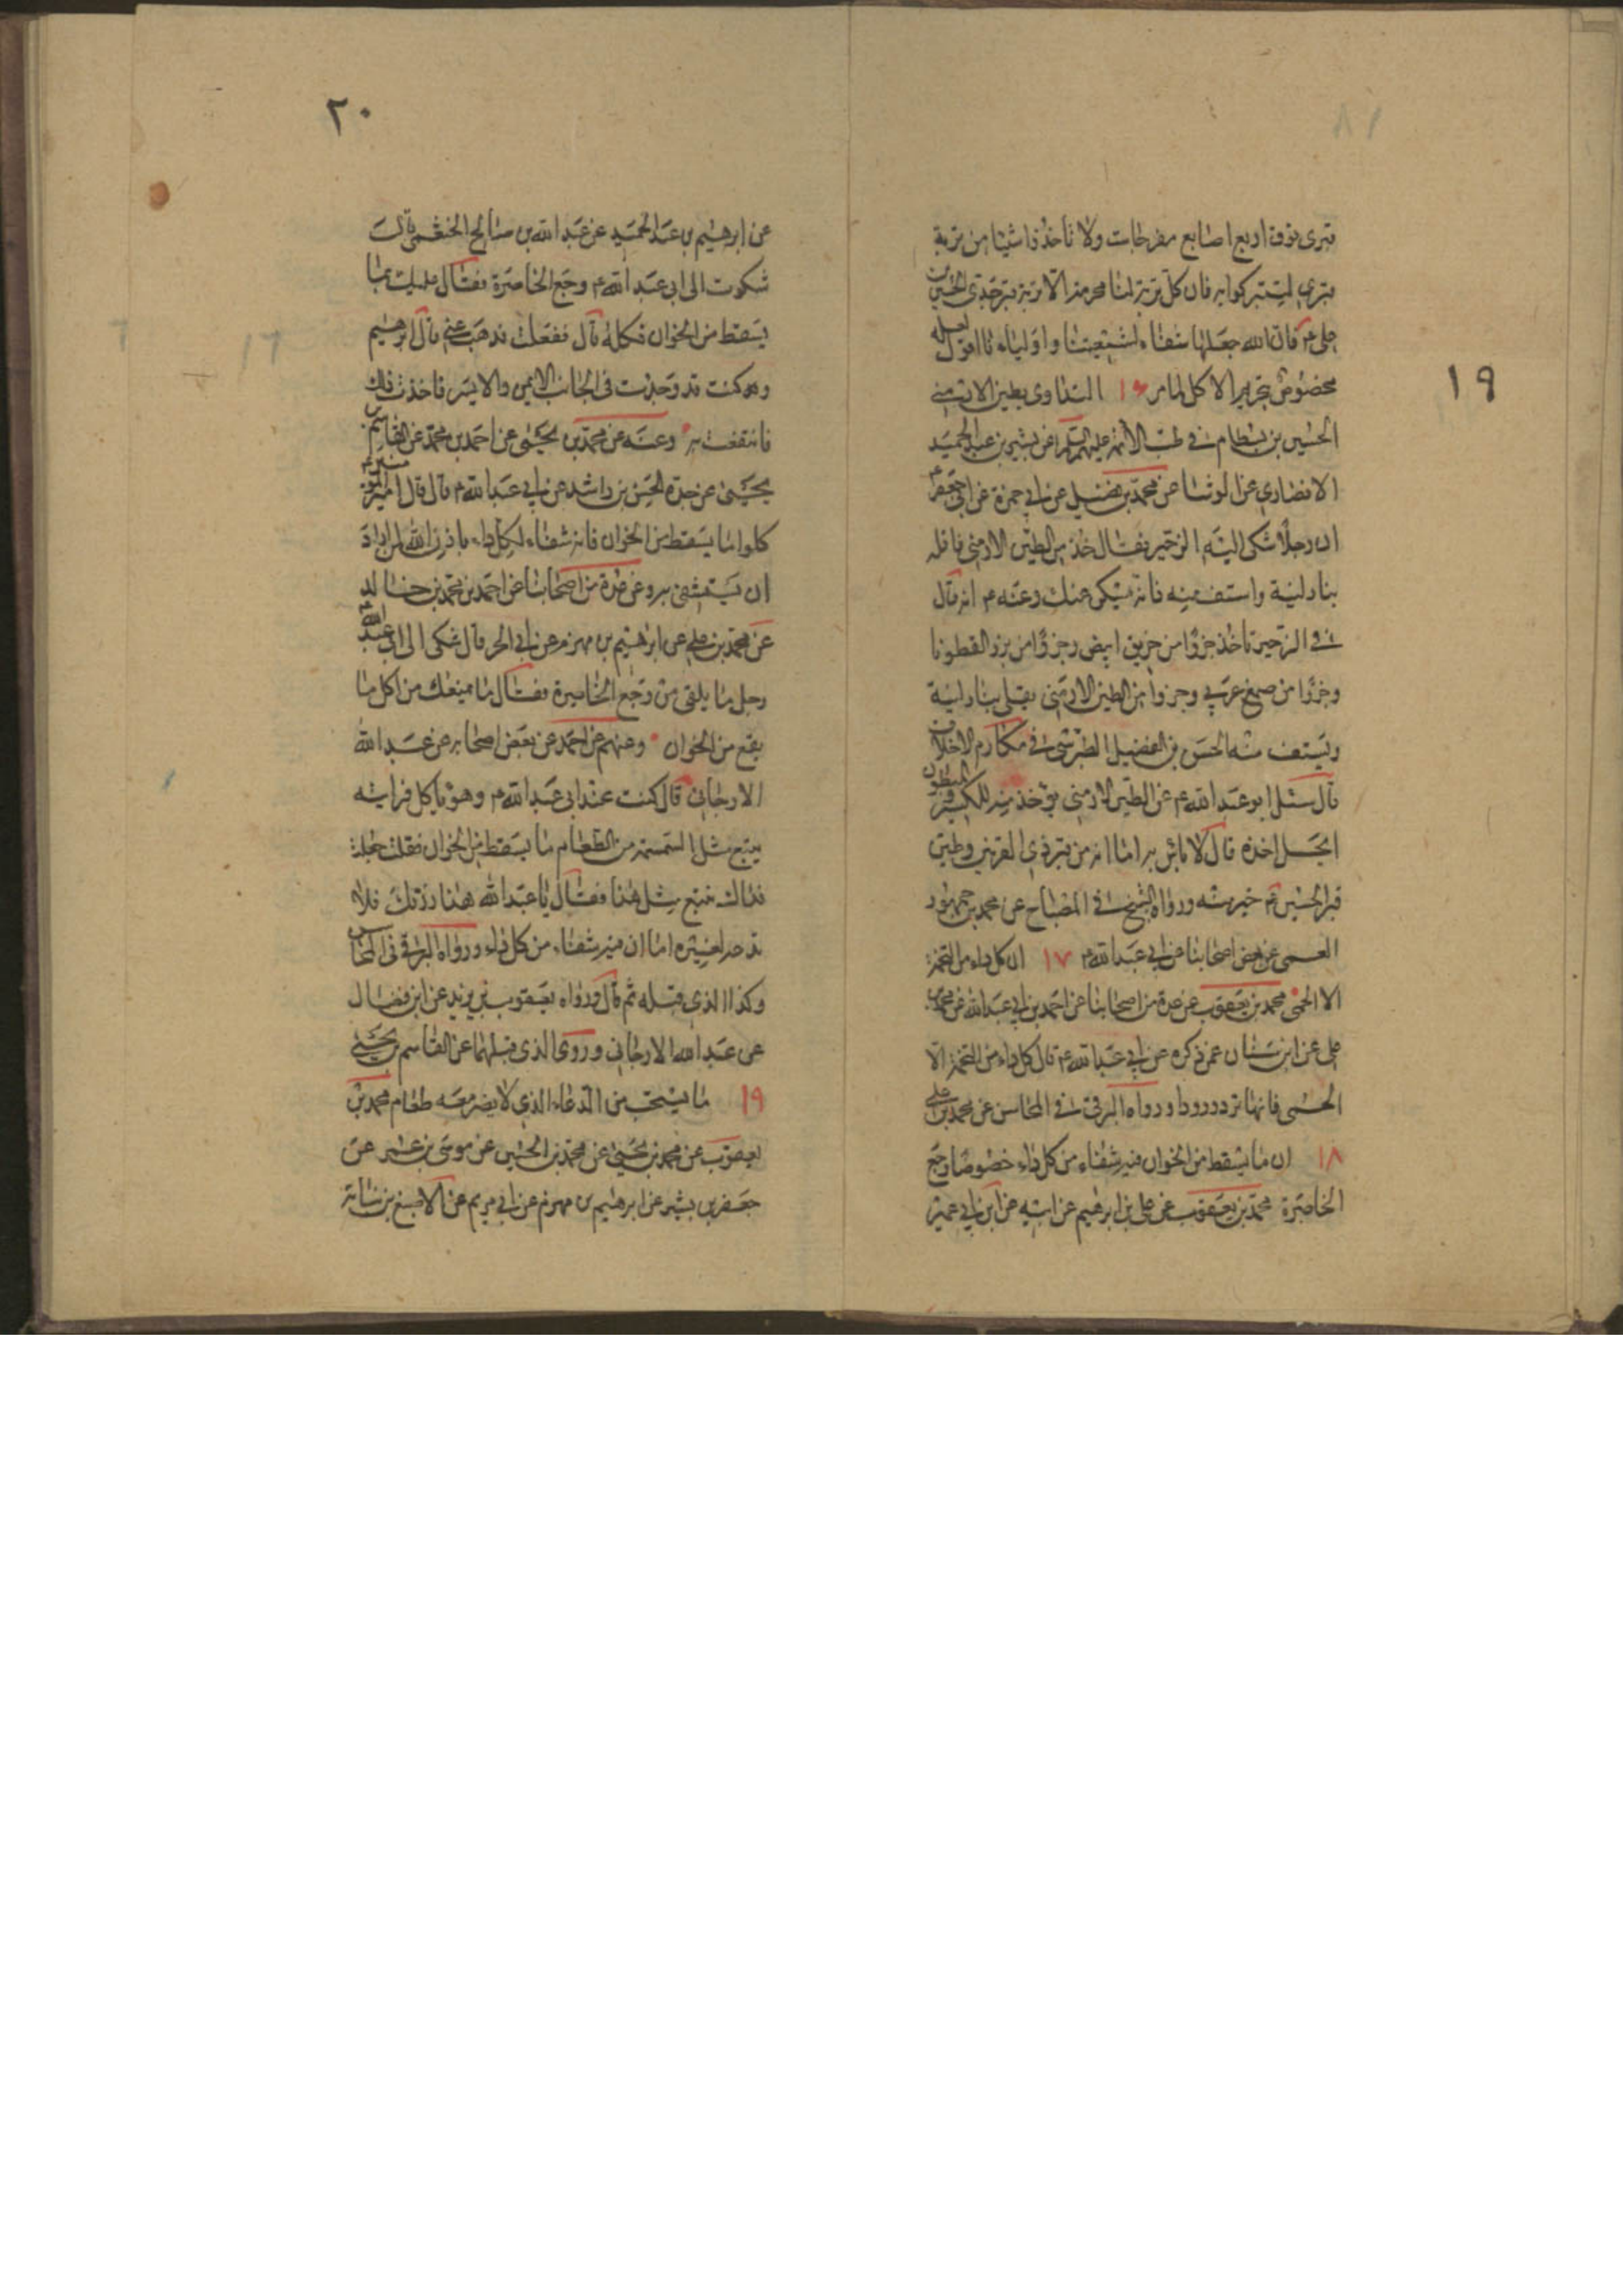 ١٩
قبري فوق اربع اصابع مفرجات ولا تأخذوا شيئا من تربة
قبري لتتبركوا به فان كل تربة لنا محرمة الا تربة جدي الحسين بن
علي ع فان الله جعلها شفاء لشيعتنا واوليائنا اقول لعله
مخصوص بتحريم الاكل لما مر ١٦ التداوي بطين الارمني
الحسين بن بسطام في طب الائمة عليهم السلام عن بشير بن عبد الحميد
الانصاري عن الوشا عن محمد بن فضيل عن ابي حمزة عن ابي جعفر ع
ان رجلا شكى اليه الزحير فقال خذ من الطين الارمني فاقله
بنار لينة واستف منه فانه يسكن عنك وعنه ع انه قال
في الزحير تأخذ جزؤا من خربق ابيض وجزؤا من بزر القطونا
وجزؤا من صمغ عربي وجزوا من الطين الارمني يقلى بنار لينة
ويستف منه الحسن بن الفضيل الطبرسي في مكارم الاخلاق
قال سئل ابو عبد الله ع عن الطين الارمني يؤخذ منه للكسير والمبطون
ايحل اخذه قال لا باس به اما انه من قبر ذي القرنين وطين
قبر الحسين ع خير منه ورواه الشيخ في المصباح عن محمد بن جمهور
العمي عن بعض اصحابنا عن ابي عبد الله ع ١٧ ان كل داء من التخمة
الا الحمى محمد بن يعقوب عن عدة من اصحابنا عن احمد بن ابي عبد الله عن محمد بن
علي عن ابن سنان عمن ذكره عن ابي عبد الله ع قال كل داء من التخمة الا
الحمى فانها ترد ورودا ورواه البرقي في المحاسن عن محمد بن علي
١٨ ان ما يسقط من الخوان فيه شفاء من كل داء خصوصا وجع
الخاصرة محمد بن يعقوب عن علي بن ابرهيم عن ابيه عن ابن ابي عمير
٢٠
عن ابرهيم بن عبد الحميد عن عبد الله بن صالح الخثعمي قال
شكوت الى ابي عبد الله ع وجع الخاصرة فقال عليك بما
يسقط من الخوان فكله قال ففعلت فذهب عني قال ابرهيم
وقد كنت قد وجدت في الجانب الايمن والايسر فاخذت ذلك
فانتفعت به وعنه عن محمد بن يحيى عن احمد بن محمد عن القاسم بن
يحيى عن جده الحسن بن راشد عن ابي عبد الله ع قال قال امير المؤمنين ع
كلوا ما يسقط من الخوان فانه شفاء لكل داء باذن الله لمن اراد
ان يستشفي به وعن عدة من اصحابنا عن احمد بن محمد بن خالد
عن محمد بن علي عن ابرهيم بن مهزم عن ابي الحر قال شكى الى ابي عبد الله ع
رجل ما يلقى من وجع الخاصرة فقال ما يمنعك من اكل ما
يقع من الخوان وعنهم عن احمد عن بعض اصحابه عن عبد الله
الارجاني قال كنت عند ابي عبد الله ع وهو ياكل فرايته
يتبع مثل السمسمة من الطعام ما يسقط من الخوان فقلت جعلت
فداك تتبع مثل هذا فقال يا عبد الله هذا رزقك فلا
تدعه لغيرك اما ان فيه شفاء من كل داء ورواه البرقي في المحاسن
وكذا الذي قبله ثم قال ورواه يعقوب بن يزيد عن ابن فضال
عن عبد الله الارجاني وروى الذي قبلهما عن القاسم بن يحيى
١٩ ما يستحب من الدعاء الذي لا يضر معه طعام محمد بن
يعقوب عن محمد بن يحيى عن محمد بن الحسين عن موسى بن عمر عن
جعفر بن بشير عن ابرهيم بن مهزم عن ابي مريم عن الاصبغ بن نباتة